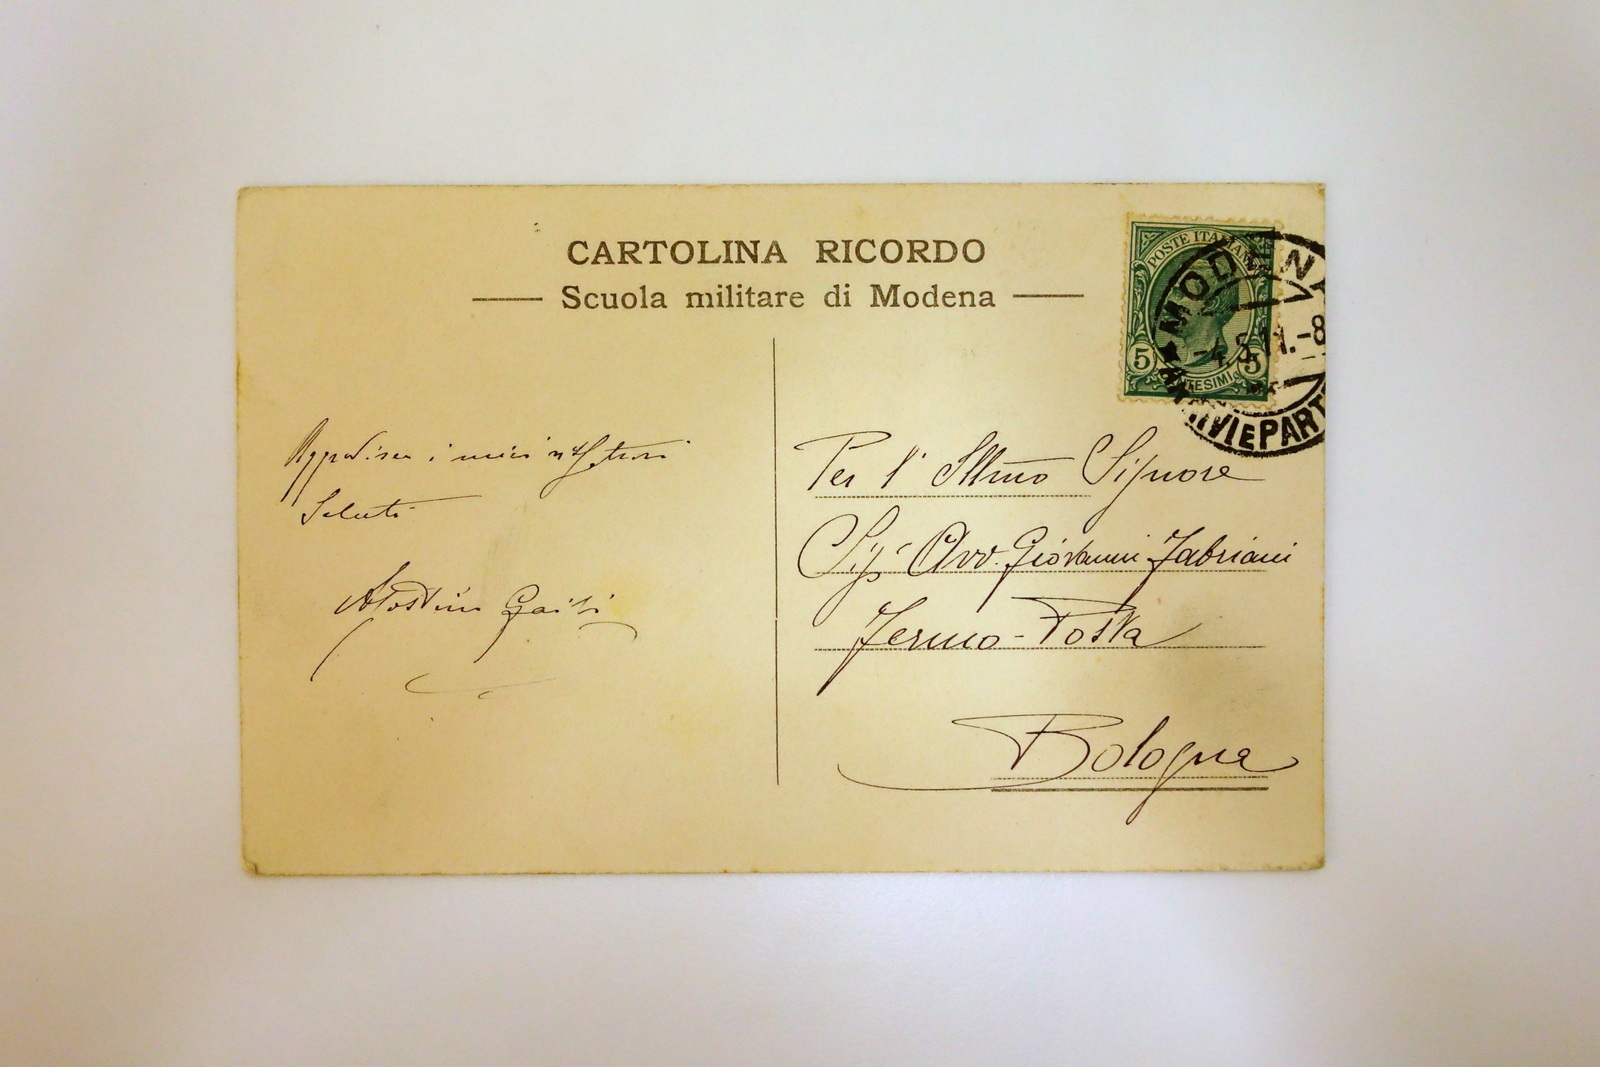 CARTOLINA RICORDO
Scuola militare di Modena
POSTE ITALIANE
5 CENTESIMI 5
MODENA
-4.5.11.-8
ARRIVI E PART
i miei
Saluti
Per l' Illmo Signore
Sigr Avv. Giovanni Fabriani
Fermo-Posta
Bologna